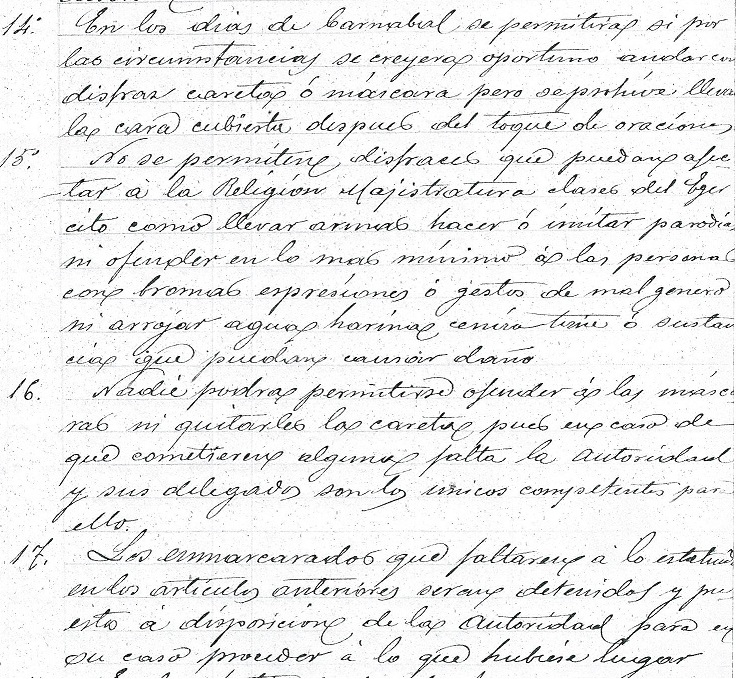 14. En los dias de Carnabal se permitira si por
las circunstancias se creyera oportuno andar con
disfraz careta ó máscara pero se prohive lleva
la cara cubierta despues del toque de oraciones
15. No se permiten disfraces que puedan afec
tar á la Religión Majistratura clases del Eger
cito como llevar armas hacer ó imitar parodia
ni ofender en lo mas mínimo á las personas
con bromas espresiones ó gestos de mal genero
ni arrojar agua harina ceniza tizne ó sustan
cias que puedan causar daño
16. Nadie podra permitirse ofender á las másca
ras ni quitarles la careta pues en caso de
que cometieren alguna falta la autoridad
y sus delegados son los unicos competentes para
ello.
17. Los enmarcarados que faltaren á lo estatuid
en los artículos anteriores seran detenidos y pu
estos á disposicion de la autoridad para en
su caso proceder á lo que hubiese lugar